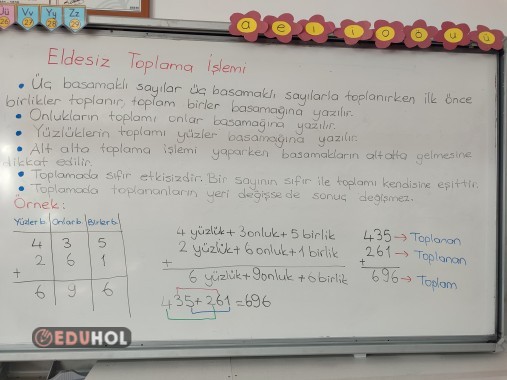 Üü Vv Yy Zz
26 27 28 29
a e ı i o ö u ü
Eldesiz Toplama İşlemi
• Üç basamaklı sayılar üç basamaklı sayılarla toplanırken ilk önce
birlikler toplanır, toplam birler basamağına yazılır.
• Onlukların toplamı onlar basamağına yazılır.
• Yüzlüklerin toplamı yüzler basamağına yazılır.
• Alt alta toplama işlemi yaparken basamakların alt alta gelmesine
dikkat edilir.
• Toplamada sıfır etkisizdir. Bir sayının sıfır ile toplamı kendisine eşittir.
• Toplamada toplananların yeri değişse de sonuç değişmez.
Örnek:
Yüzler b. Onlar b. Birler b.
4 3 5
2 6 1
+
6 9 6
4 yüzlük + 3 onluk + 5 birlik
2 yüzlük + 6 onluk + 1 birlik
+
6 yüzlük + 9 onluk + 6 birlik
435 + 261 = 696
435 → Toplanan
261 → Toplanan
+
696 → Toplam
EDUHOL